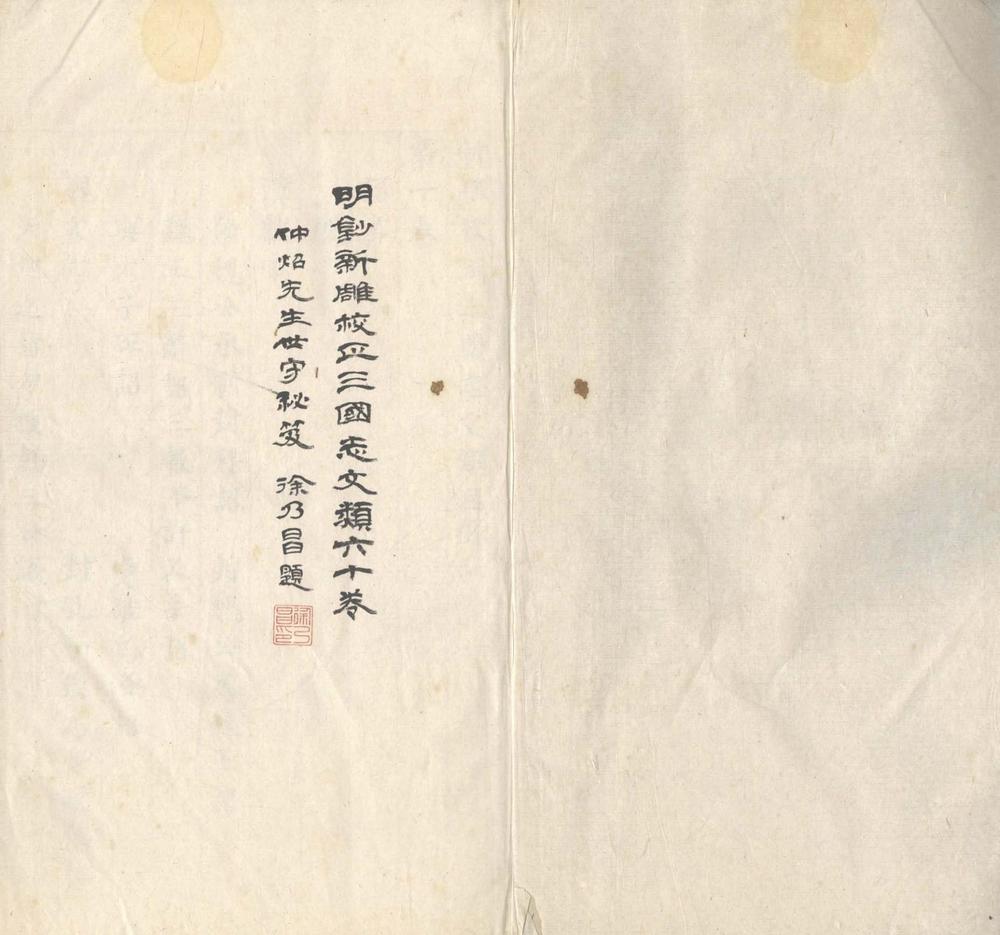 明鈔新雕校正三國志文類六十卷
仲炤先生世守秘笈 徐乃昌題
徐乃昌印